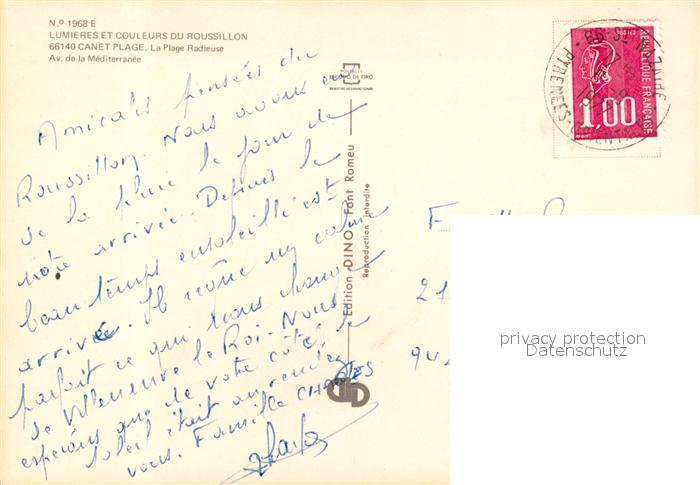 N.º 1968·E
LUMIERES ET COULEURS DU ROUSSILLON
66140 CANET PLAGE. La Plage Radieuse
Av. de la Méditerranée
RECORD DE ORO
Amicales pensées du
Roussillon. Nous avons eu
de la pluie le jour de
notre arrivée. Depuis le
beau temps ensoleillé est
arrivé. Il règne un calme
parfait ce qui nous change
de Villeneuve le Roi. Nous
espérons que de votre côté, le
soleil était au rendez
vous. Famille CHARLES
Edition DINO Font Romeu
Reproduction interdire
66 ST NAZAIRE
PYRENEES-ORIENTALES
REPUBLIQUE FRANÇAISE
POSTES
1,00
21
94
privacy protection
Datenschutz